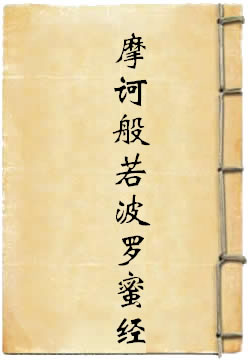 摩诃般若波罗蜜经